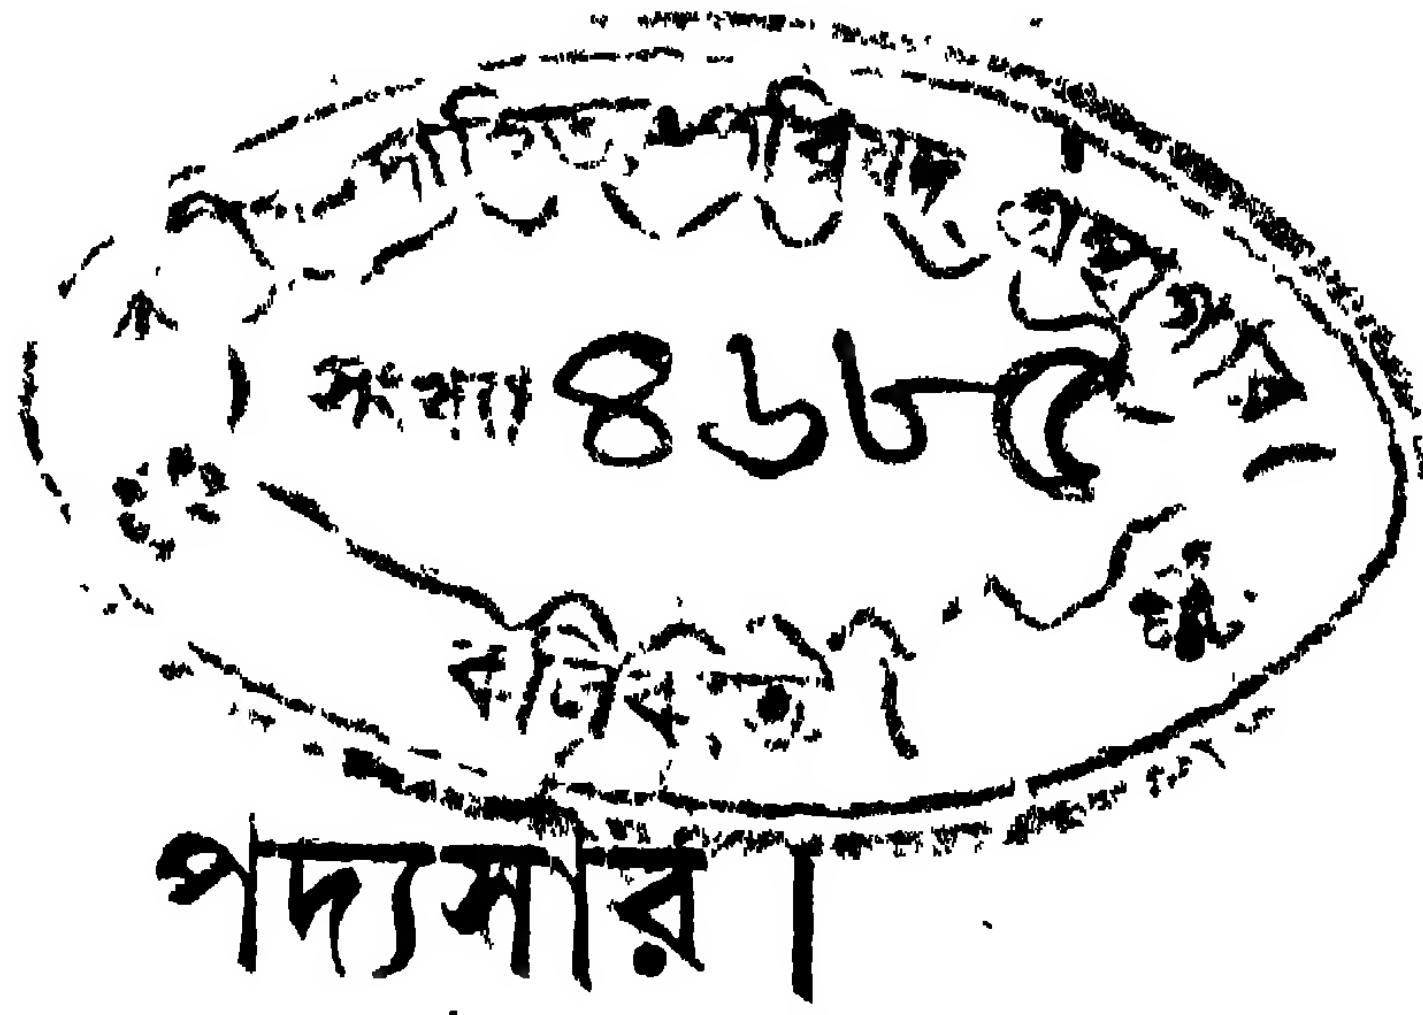 সাহিত্য পরিষদ গ্রন্থাগার
সংখ্যা ৪৬৮৫
কলিকাতা
পদ্যসার।